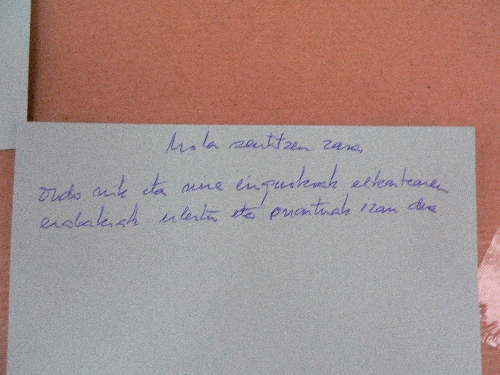 Nola sentitzen zara
Ondo nik eta nire ingurukoak elkartearen
erabakiak ulertu eta onartuak izan dira